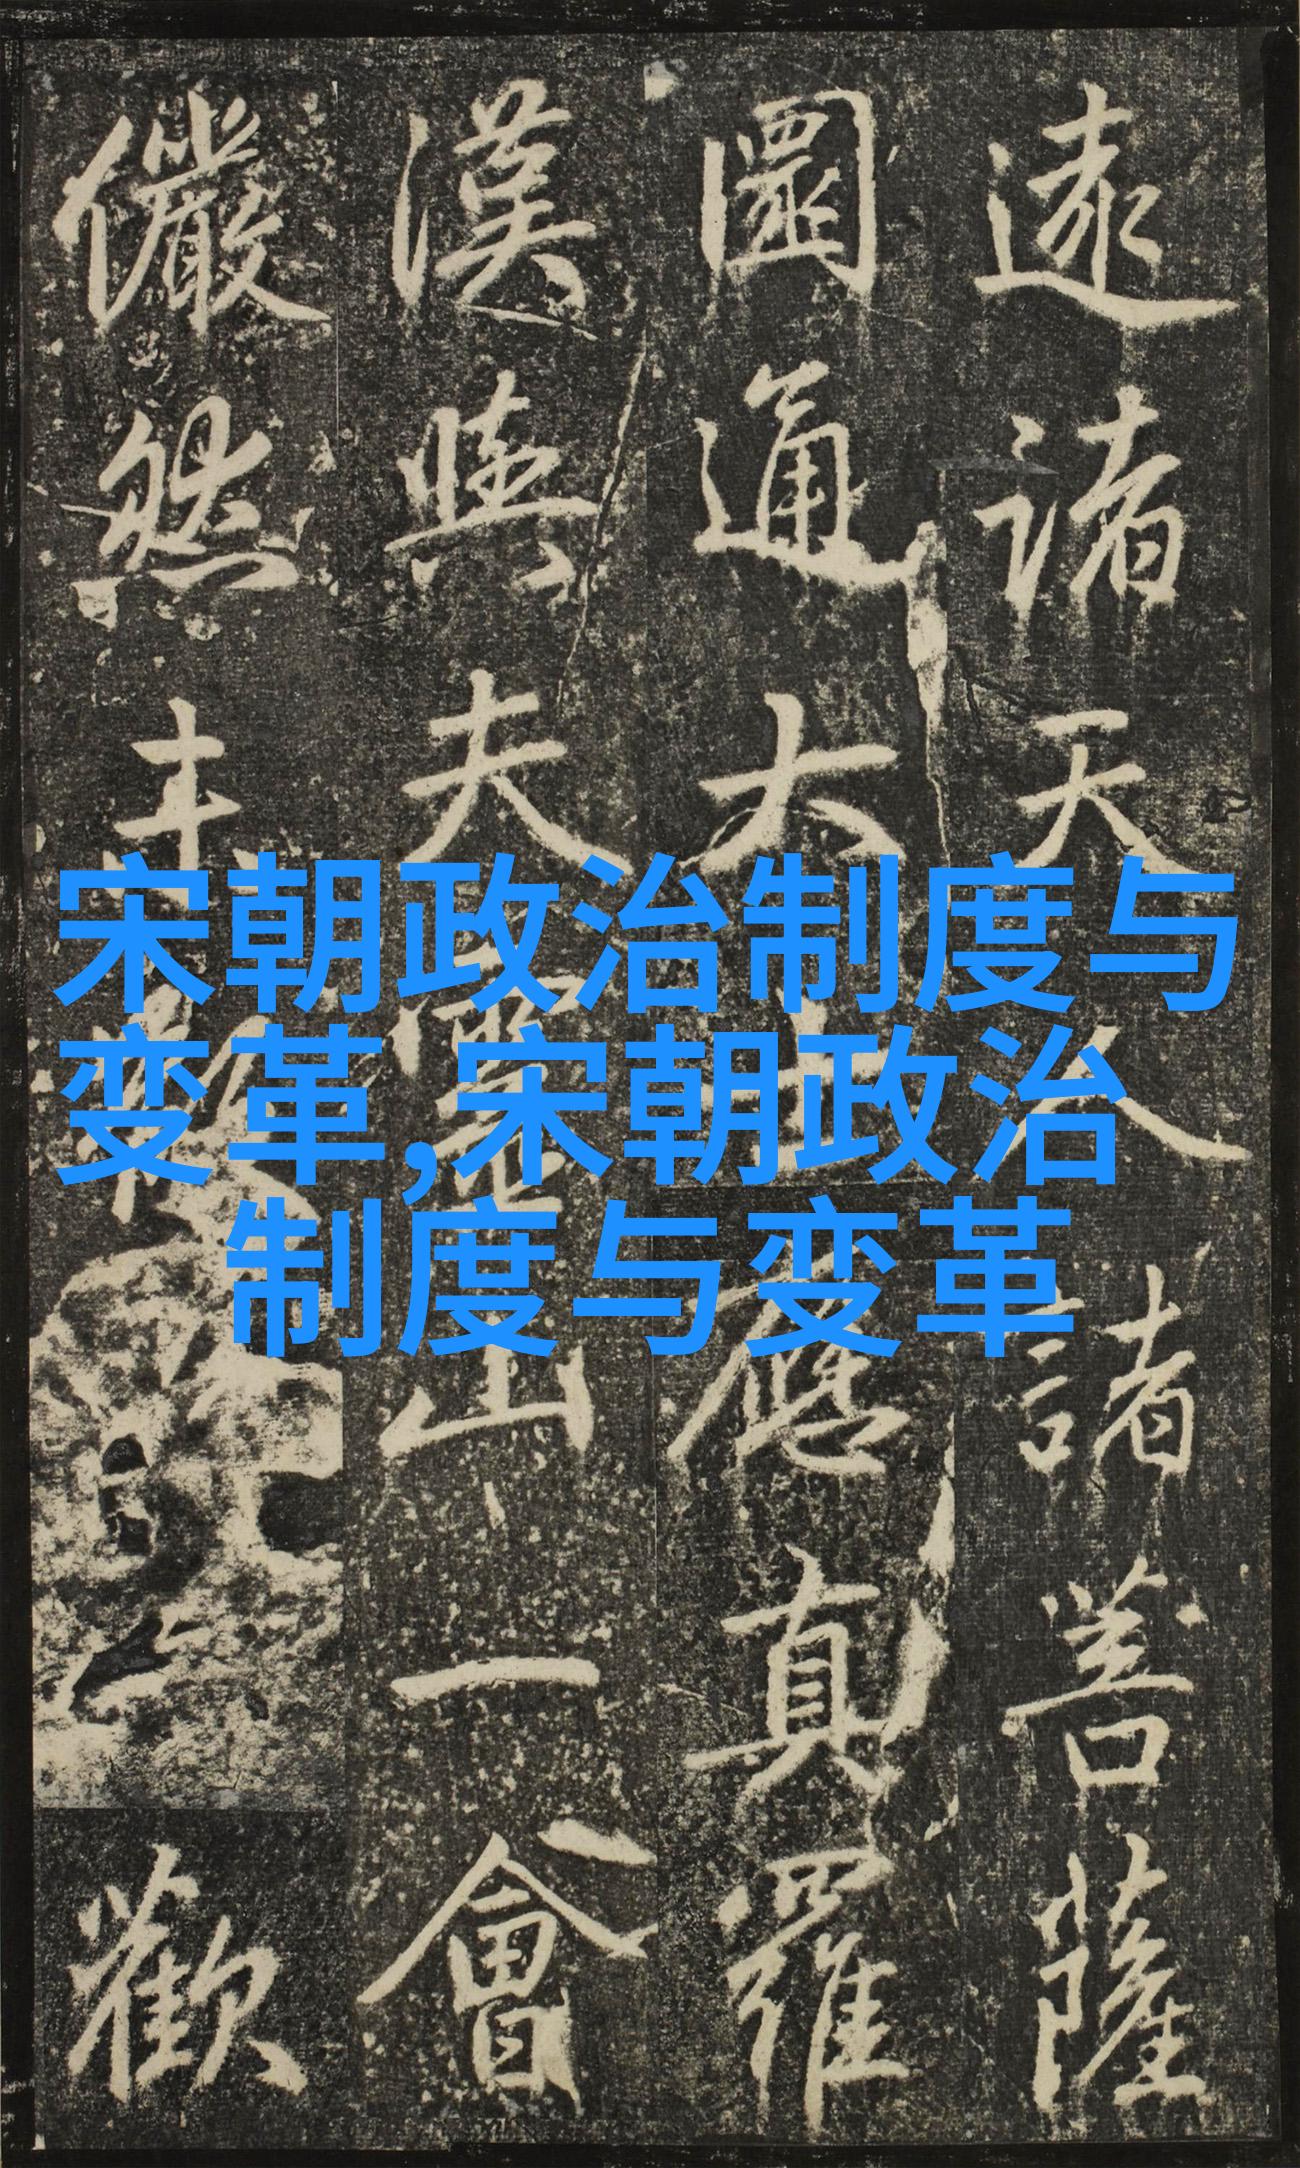 宋朝政治制度与
变革,宋朝政治
制度与变革
遠諸天人諸菩薩
圜通大士應真羅
漢與夫靈山一會
儼然未歡